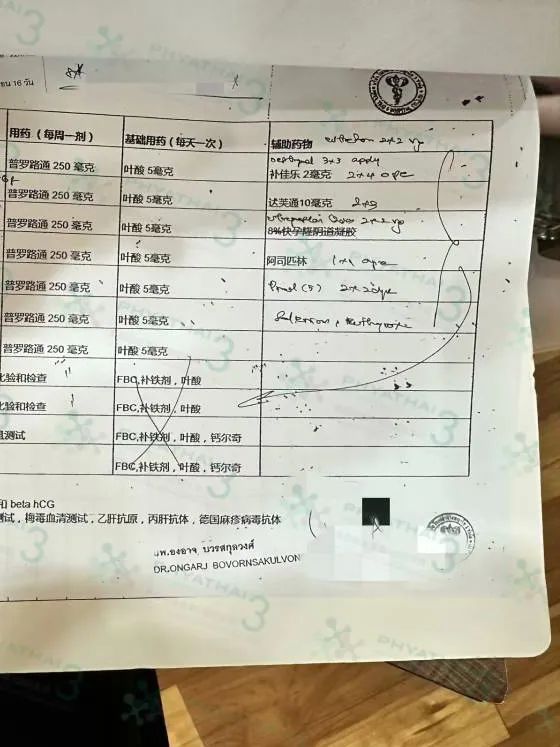 PHYATHAI 3
16 วัน
用药（每周一剂） 基础用药（每天一次） 辅助药物 2x2
普罗路通 250 毫克 叶酸 5毫克 3x3 apply
补佳乐 2毫克 2x4
普罗路通 250 毫克 叶酸 5毫克 达芙通10毫克 2x3
普罗路通 250 毫克 叶酸 5毫克 2x2
8%快孕隆阴道凝胶
普罗路通 250 毫克 叶酸 5毫克 阿司匹林 1x1
普罗路通 250 毫克 叶酸 5毫克 Pred (5) 2x2
普罗路通 250 毫克 叶酸 5毫克
普罗路通 250 毫克 叶酸 5毫克
化验和检查 FBC,补铁剂，叶酸
化验和检查 FBC,补铁剂，叶酸
测试 FBC,补铁剂，叶酸，钙尔奇
FBC,补铁剂，叶酸，钙尔奇
和 beta hCG
测试，梅毒血清测试，乙肝抗原，丙肝抗体，德国麻疹病毒抗体
นพ.องอาจ บวรสกุลวงศ์
DR.ONGARJ BOVORNSAKULVON